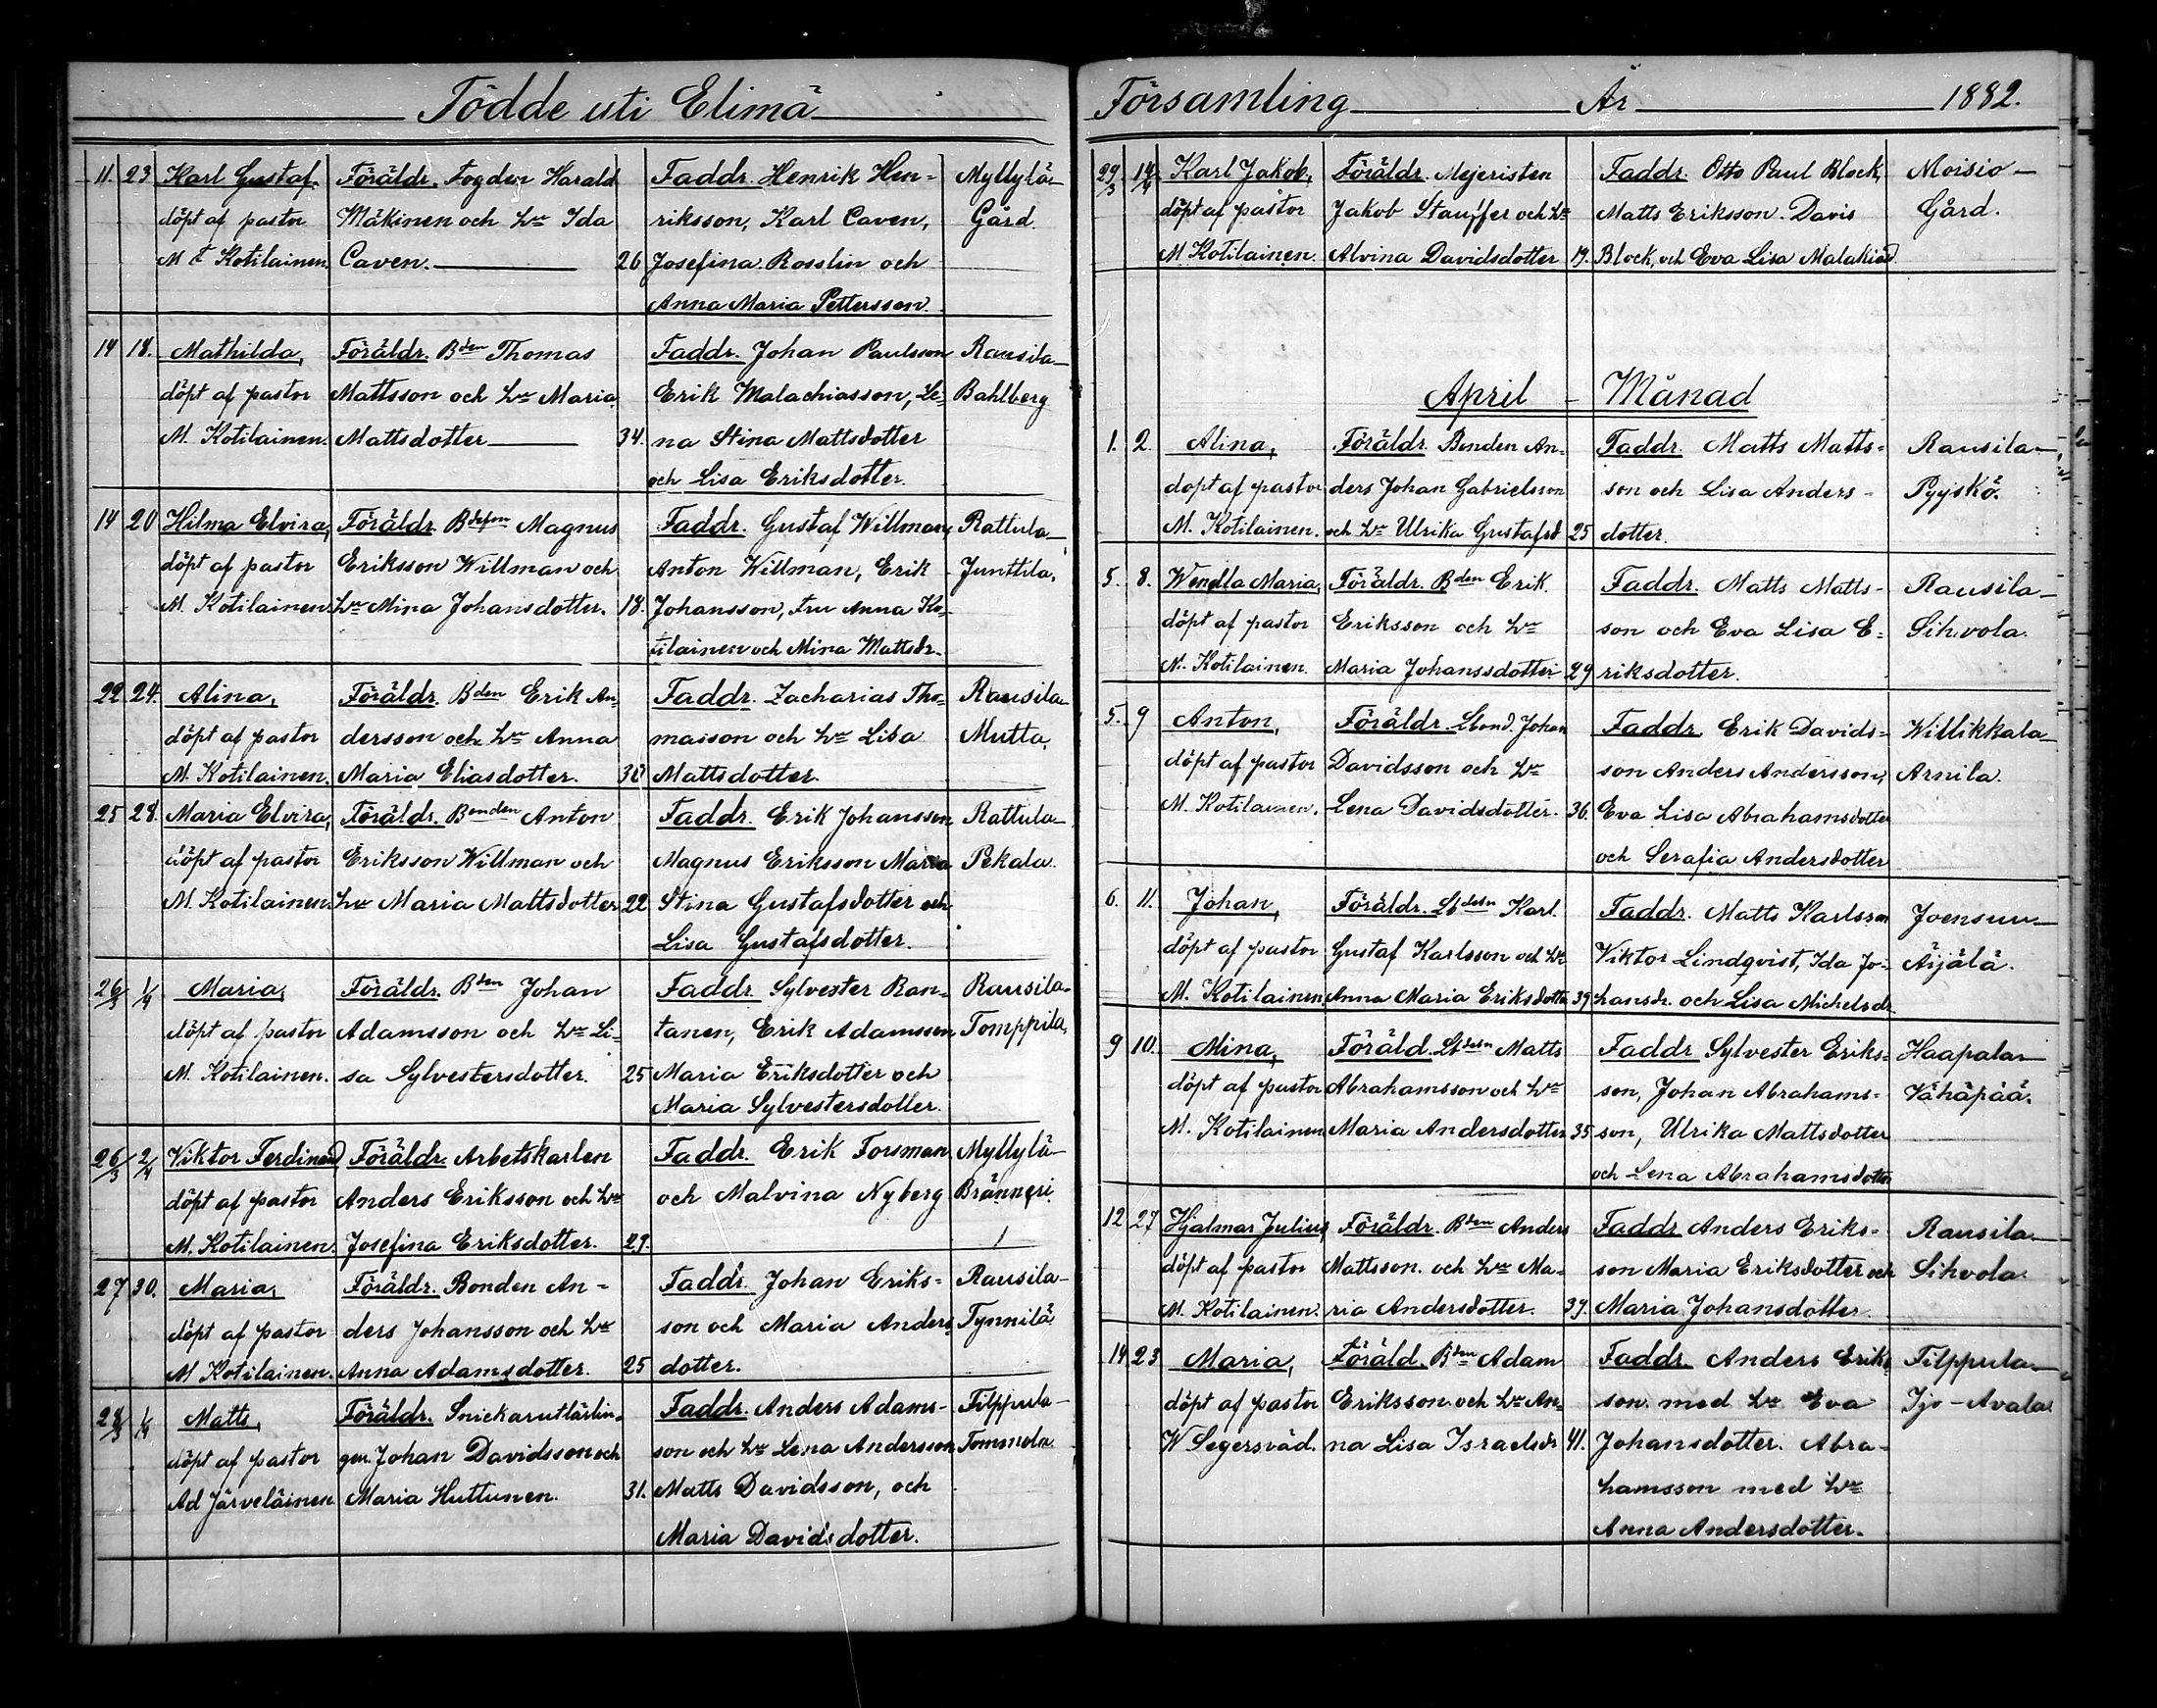 Födde uti Elimä
11. 23 Karl Gustaf. Föräldr. Fogden Harald Faddr. Henrik Hen= Myllylä-
döpt af pastor Mäkinen och hr Ida riksson, Karl Caven, Gård.
M Kotilainen. Caven. 26 Josefina Rosslin och
Anna Maria Pettersson.
14 18. Mathilda, Föräldr. Bden Thomas Faddr. Johan Paulsson Rausila-
döpt af pastor Mattsson och hr Maria Erik Malachiasson, Le= Bahlberg
M. Kotilainen. Mattsdotter 34. na Stina Mattsdotter
och Lisa Eriksdotter.
14 20 Hilma Elvira, Föräldr. Magnus Faddr. Gustaf Willman, Rattula-
döpt af pastor Eriksson Willman och Anton Willman, Erik Junttila.
M. Kotilainen. hr Mina Johansdotter. 18. Johansson, fru Anna Ko-
tilainen och Mina Mattsdr.
22 24. Alina, Föräldr. Bden Erik An= Faddr. Zacharias Tho= Rausila-
döpt af pastor dersson och hr Anna masson och hr Lisa Mutta.
M. Kotilainen. Maria Eliasdotter. Mattsdotter.
25 28. Maria Elvira, Föräldr. Bonden Anton Faddr. Erik Johansson Rattula-
döpt af pastor Eriksson Willman och Magnus Eriksson Maria Pekala.
M. Kotilainen. hr Maria Mattsdotter 22 Stina Gustafsdotter och
Lisa Gustafsdotter.
26/3 1/4 Maria, Föräldr. Bden Johan Faddr. Sylvester Ran= Rausila-
döpt af pastor Adamsson och hr Li= tanen, Erik Adamsson Tomppila.
M. Kotilainen. sa Sylvestersdotter. 25 Maria Eriksdotter och
Maria Sylvestersdotter.
26/3 2/4 Viktor Ferdinand Föräldr. Arbetskarlen Faddr. Erik Forsman Myllylä-
döpt af pastor Anders Eriksson och hr och Malvina Nyberg Bränneri
M. Kotilainen. Josefina Eriksdotter. 29.
27 30. Maria, Föräldr. Bonden An- Faddr. Johan Eriks= Rausila-
döpt af pastor ders Johansson och hr son och Maria Anders Tynnilä.
M Kotilainen. Anna Adamsdotter. 25 dotter.
28/3 1/4 Matts, Föräldr. Snickarutlärlin= Faddr. Anders Adams- Filppula-
döpt af pastor gen Johan Davidsson och son och hr Lena Andersson Tommola.
Ad Järveläinen Maria Huttunen. 31. Matts Davidsson, och
Maria Davidsdotter.
Församling År 1882.
29/3 14/4 Karl Jakob, Föräldr. Mejeristen Faddr. Otto Paul Block, Moisio-
döpt af pastor Jakob Stauffer och hr Matts Eriksson. Davis Gård.
M Kotilainen. Alvina Davidsdotter 19. Block, och Eva Lisa Malakiasd.
April - Månad
1. 2. Alina, Föräldr. Bonden An= Faddr. Matts Matts= Rausila-
döpt af pastor ders Johan Gabrielsson son och Lisa Anders- Pyyskö.
M. Kotilainen. och hr Ulrika Gustafsd 25 dotter.
5. 8. Wendla Maria, Föräldr. Bden Erik. Faddr. Matts Matts- Rausila-
döpt af pastor Eriksson och hr son och Eva Lisa E= Sihvola.
M. Kotilainen. Maria Johanssdotter 29 riksdotter.
5. 9 Anton, Föräldr. Lbond. Johan Faddr. Erik Davids= Willikkala-
döpt af pastor Davidsson och hr son Anders Andersson, Arnila.
M. Kotilainen. Lena Davidsdotter. 36. Eva Lisa Abrahamsdotter
och Serafia Andersdotter
6. 11. Johan, Föräldr. Karl. Faddr. Matts Karlsson Joensuu-
döpt af pastor Gustaf Karlsson och hr Viktor Lindqvist, Ida Jo- Äijälä.
M. Kotilainen Anna Maria Eriksdotter 39 hansdr. och Lisa Michelsdr.
9 10. Mina, Föräld. Matts Faddr Sylvester Eriks= Haapala-
döpt af pastor Abrahamsson och hr son, Johan Abrahams= Vähäpää.
M. Kotilainen Maria Andersdotter 35 son, Ulrika Mattsdotter
och Lena Abrahamsdotter
12 27 Hjalmar Julius Föräldr. Bden Anders Faddr Anders Eriks= Rausila-
döpt af pastor Mattsson och hr Ma- son Maria Eriksdotter och Sihvola.
M. Kotilainen. ria Andersdotter. 39. Maria Johansdotter.
14 23 Maria, Föräld. Bden Adam Faddr. Anders Eriks Filppula-
döpt af pastor Eriksson och hr An= son med hr Eva Ijo-Avala
W Segersvād. na Lisa Israelsdr 41. Johansdotter. Abra-
hamsson med hr
Anna Andersdotter.